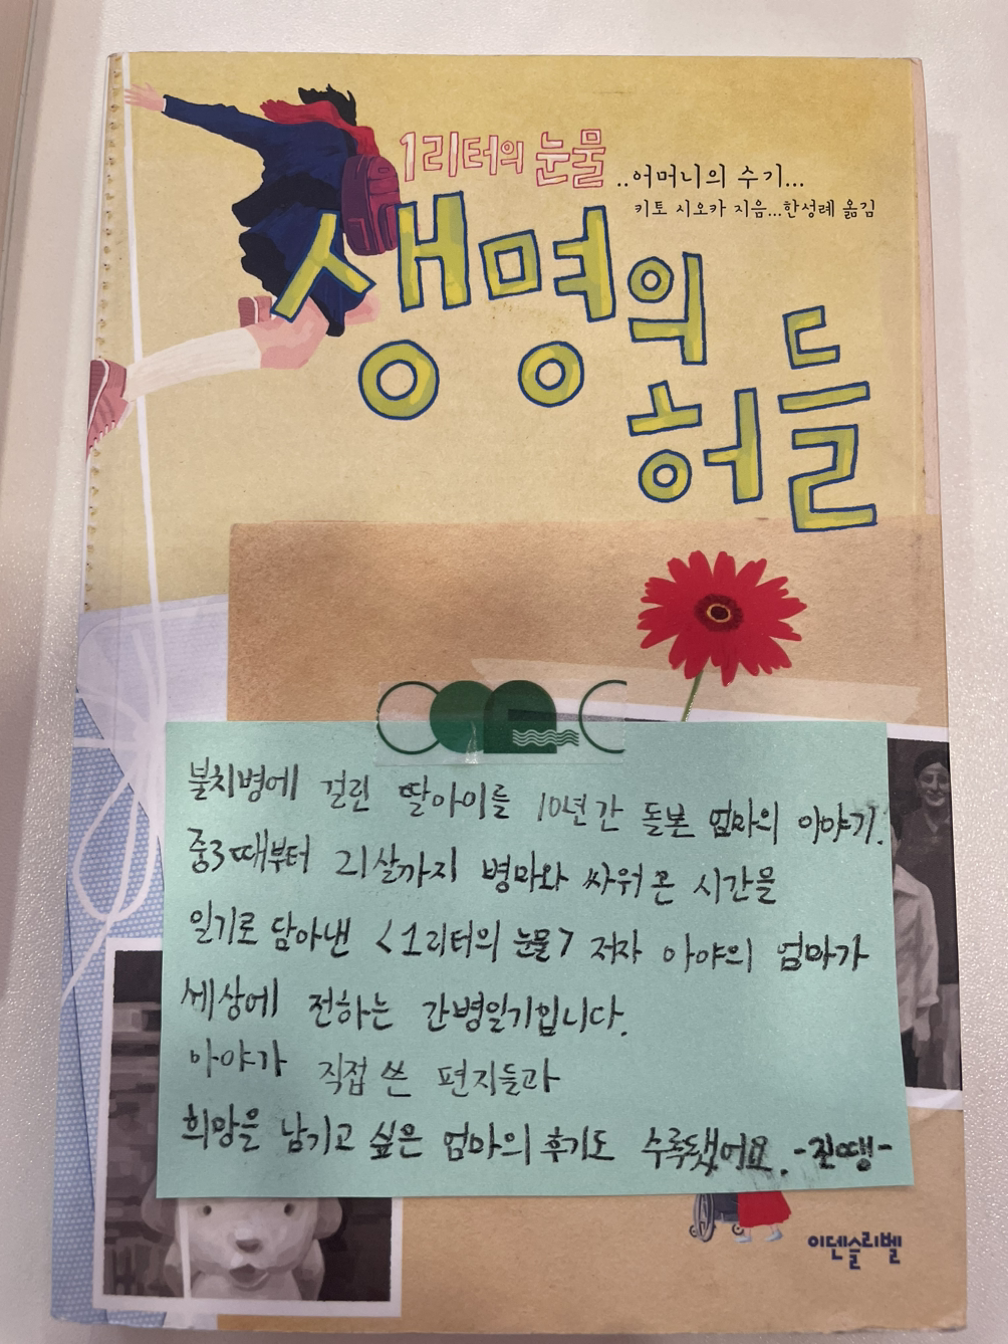 1리터의 눈물 ..어머니의 수기...
키토 시오카 지음...한성례 옮김
생명의
허들
불치병에 걸린 딸아이를 10년간 돌본 엄마의 이야기.
중3때부터 21살까지 병마와 싸워온 시간을
일기로 담아낸 <1리터의 눈물> 저자 아야의 엄마가
세상에 전하는 간병일기입니다.
아야가 직접 쓴 편지들과
희망을 남기고 싶은 엄마의 후기도 수록됐어요. -진땡-
이덴슬리벨